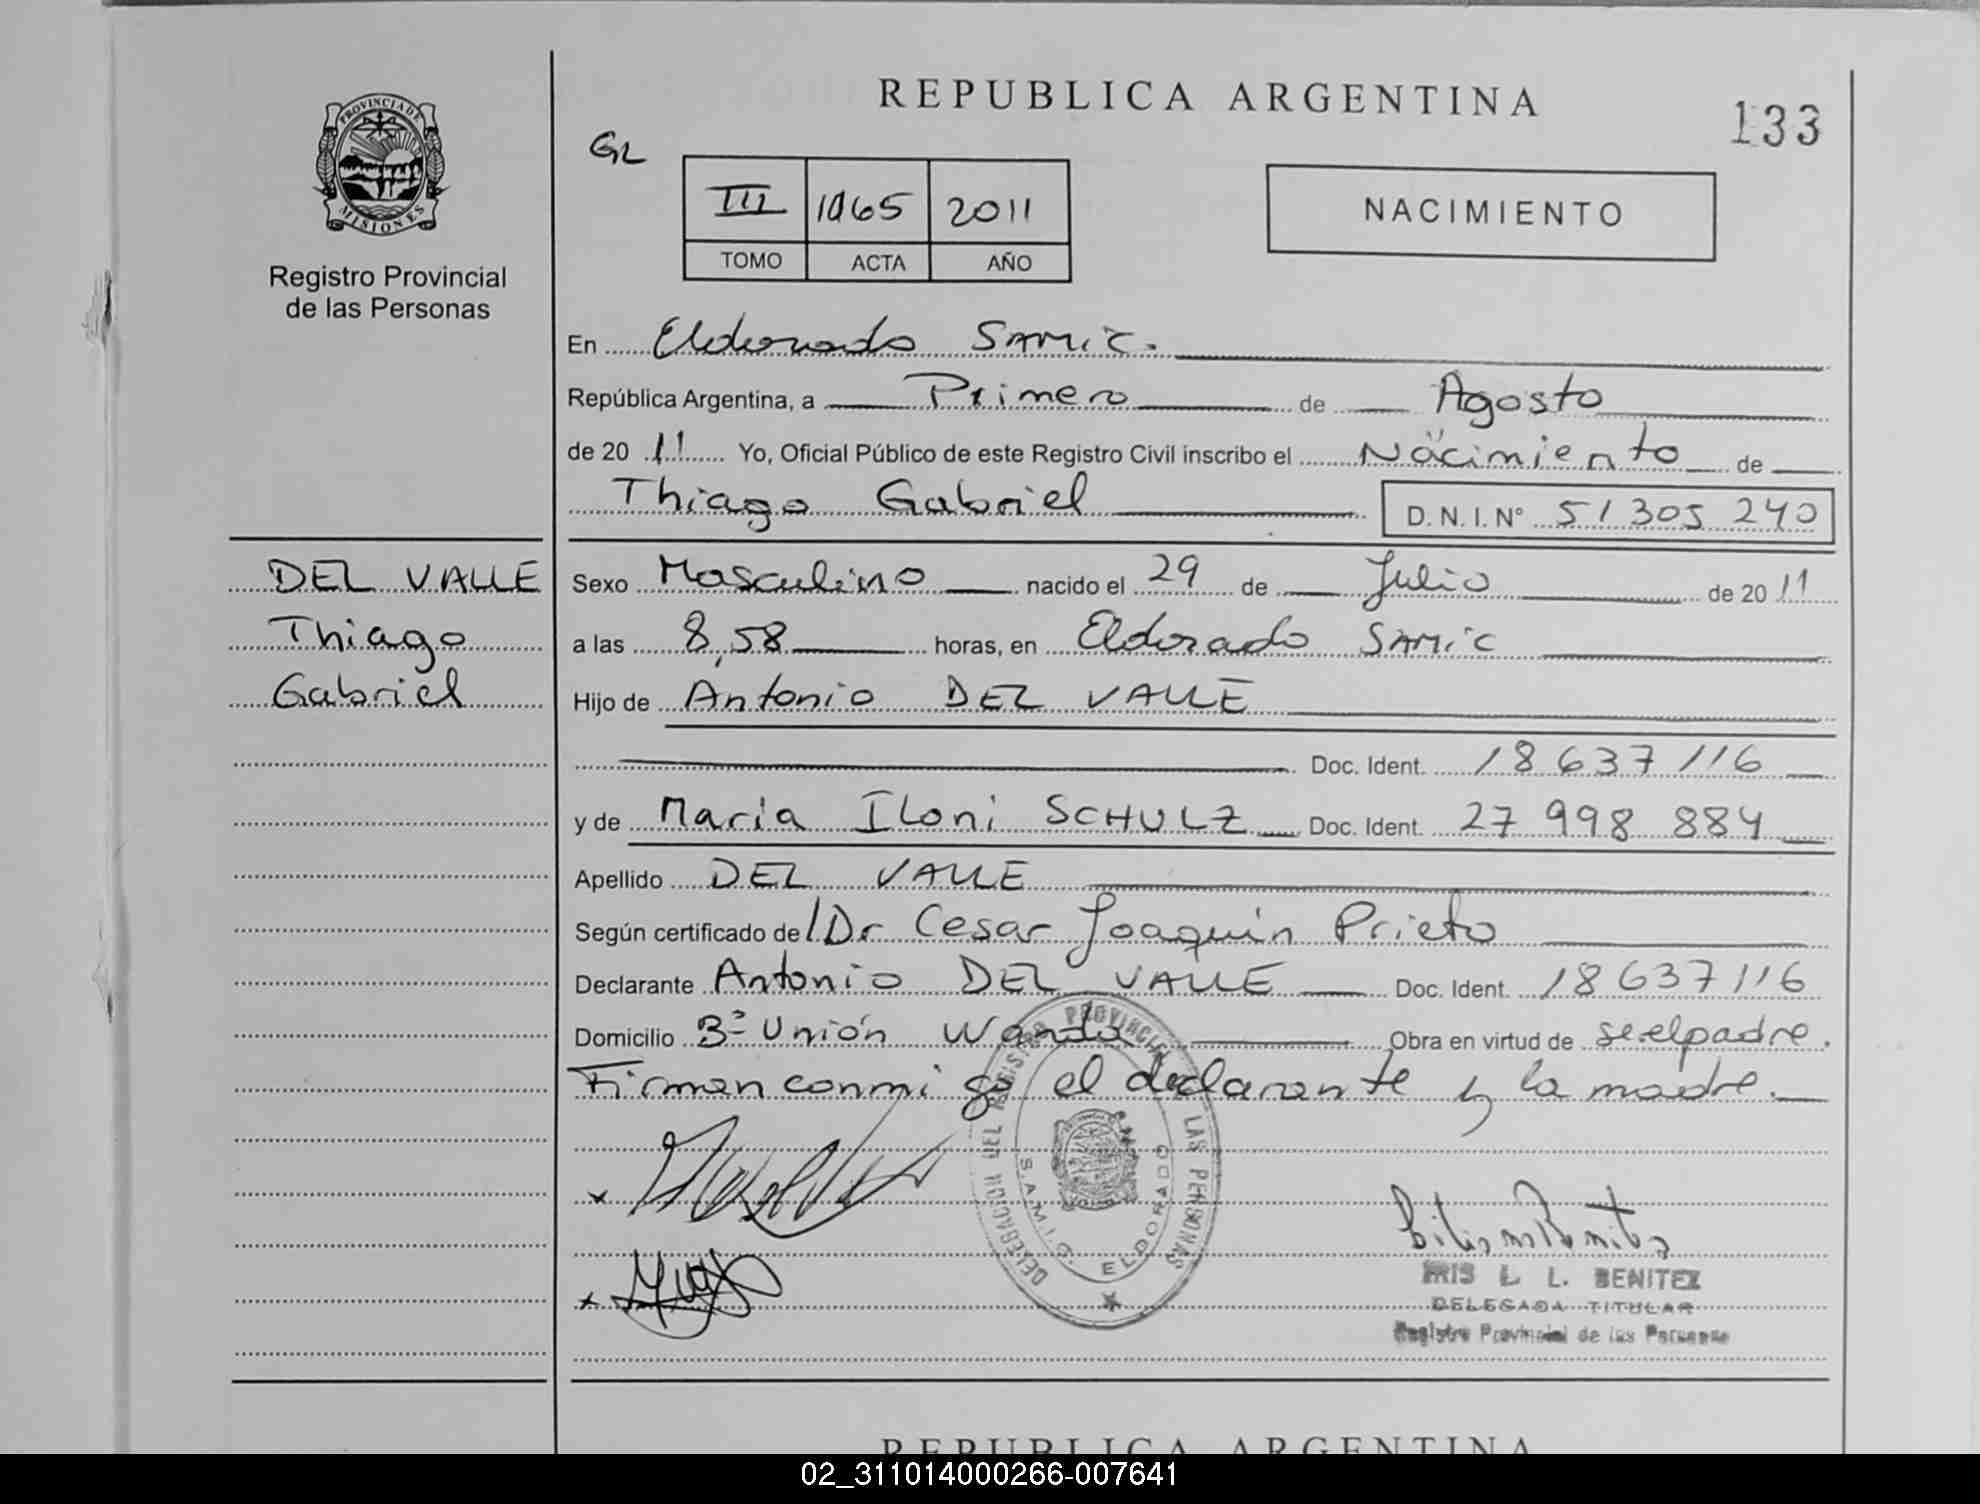 REPUBLICA ARGENTINA
133
PROVINCIA DE MISIONES
Registro Provincial
de las Personas
GL
III 1065 2011
TOMO ACTA AÑO
NACIMIENTO
En Eldorado SAMIC.
República Argentina, a Primero de Agosto
de 20 11 Yo, Oficial Público de este Registro Civil inscribo el Nacimiento de
Thiago Gabriel D. N. I. N° 51 305 240
DEL VALLE
Thiago
Gabriel
Sexo Masculino nacido el 29 de Julio de 20 11
a las 8,58 horas, en Eldorado SAMIC
Hijo de Antonio DEL VALLE
Doc. Ident. 18 637 116
y de Maria Iloni SCHULZ Doc. Ident. 27 998 884
Apellido DEL VALLE
Según certificado de/Dr Cesar Joaquín Prieto
Declarante Antonio DEL VALLE Doc. Ident. 18 637 116
Domicilio B° Unión Wanda Obra en virtud de se el padre.
Firman conmigo el declarante y la madre.
DELEGACION DEL REGISTRO PROVINCIAL LAS PERSONAS
S.A.M.I.C. ELDORADO
IRIS L. L. BENITEZ
DELEGADA TITULAR
Registro Provincial de las Personas
REPUBLICA ARGENTINA
02_311014000266-007641